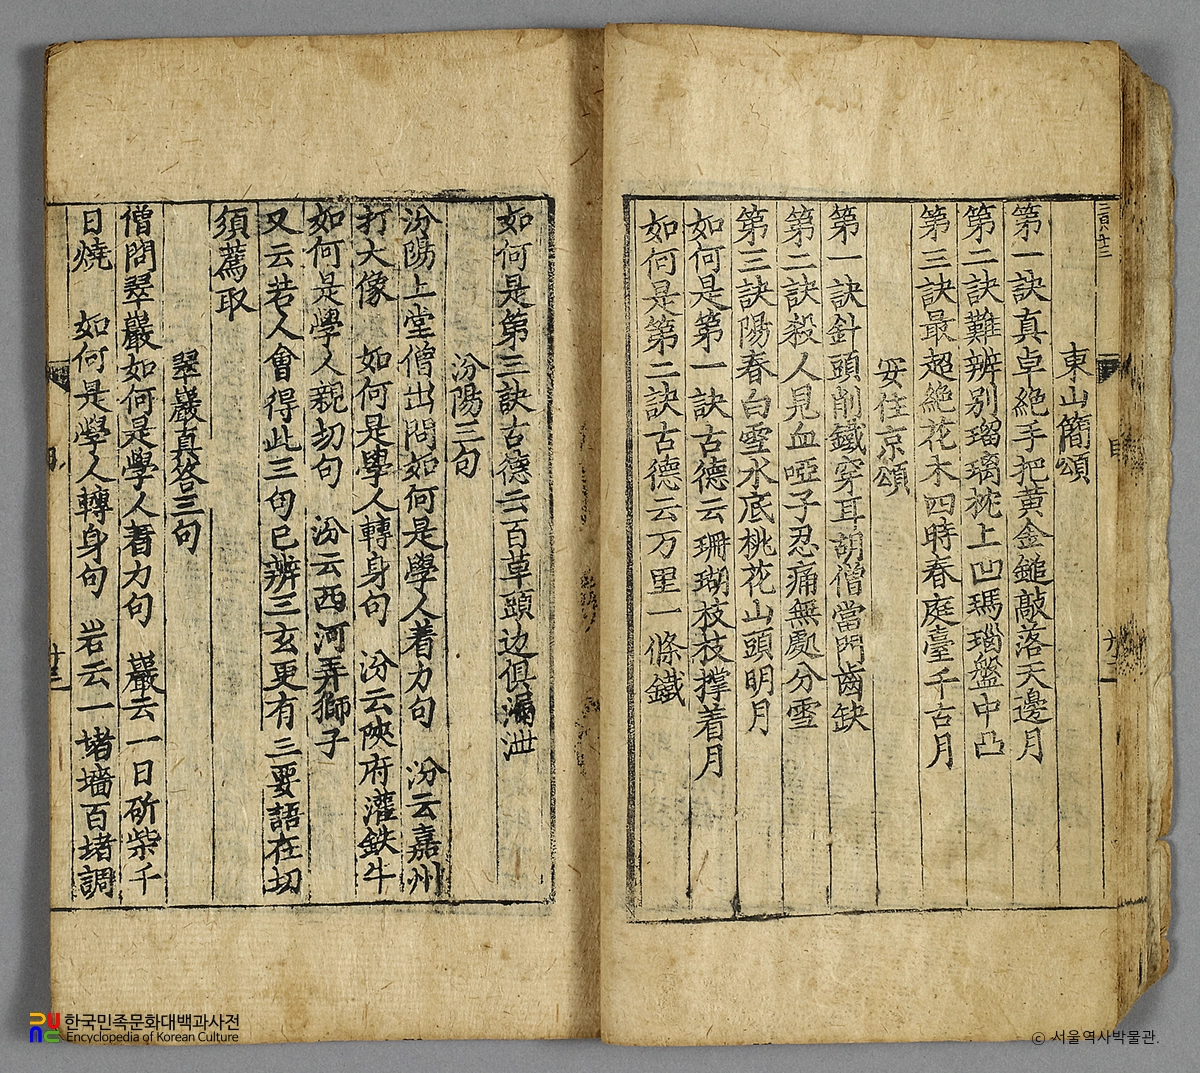 東山簡頌
第一訣真卓絶手把黄金鎚敲落天邊月
第二訣難辨別瑠璃枕上凹瑪瑙盤中凸
第三訣最超絶花木四時春庭臺千古月
安住京頌
第一訣針頭削鐵穿耳胡僧當門齒缺
第二訣殺人見血啞子忍痛無處分雪
第三訣陽春白雪水底桃花山頭明月
如何是第一訣古德云珊瑚枝枝撑着月
如何是第二訣古德云万里一條鐵
如何是第三訣古德云百草頭边俱漏泄
汾陽三句
汾陽上堂僧出問如何是學人着力句 汾云嘉州
打大像 如何是學人轉身句 汾云陝府灌鉄牛
如何是學人親切句 汾云西河弄獅子
又云若人會得此三句已辨三玄更有三要語在切
須薦取
翠巖真答三句
僧問翠巖如何是學人着力句 巖云一日斫柴千
日燒 如何是學人轉身句 岩云一堵墻百堵調
廿三
한국민족문화대백과사전
Encyclopedia of Korean Culture
ⓒ 서울역사박물관.